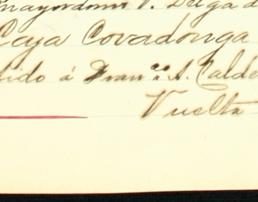 Mayordomo P. Delgad
Caja Covadonga
dido á Fran.co A. Calde
Vuelta